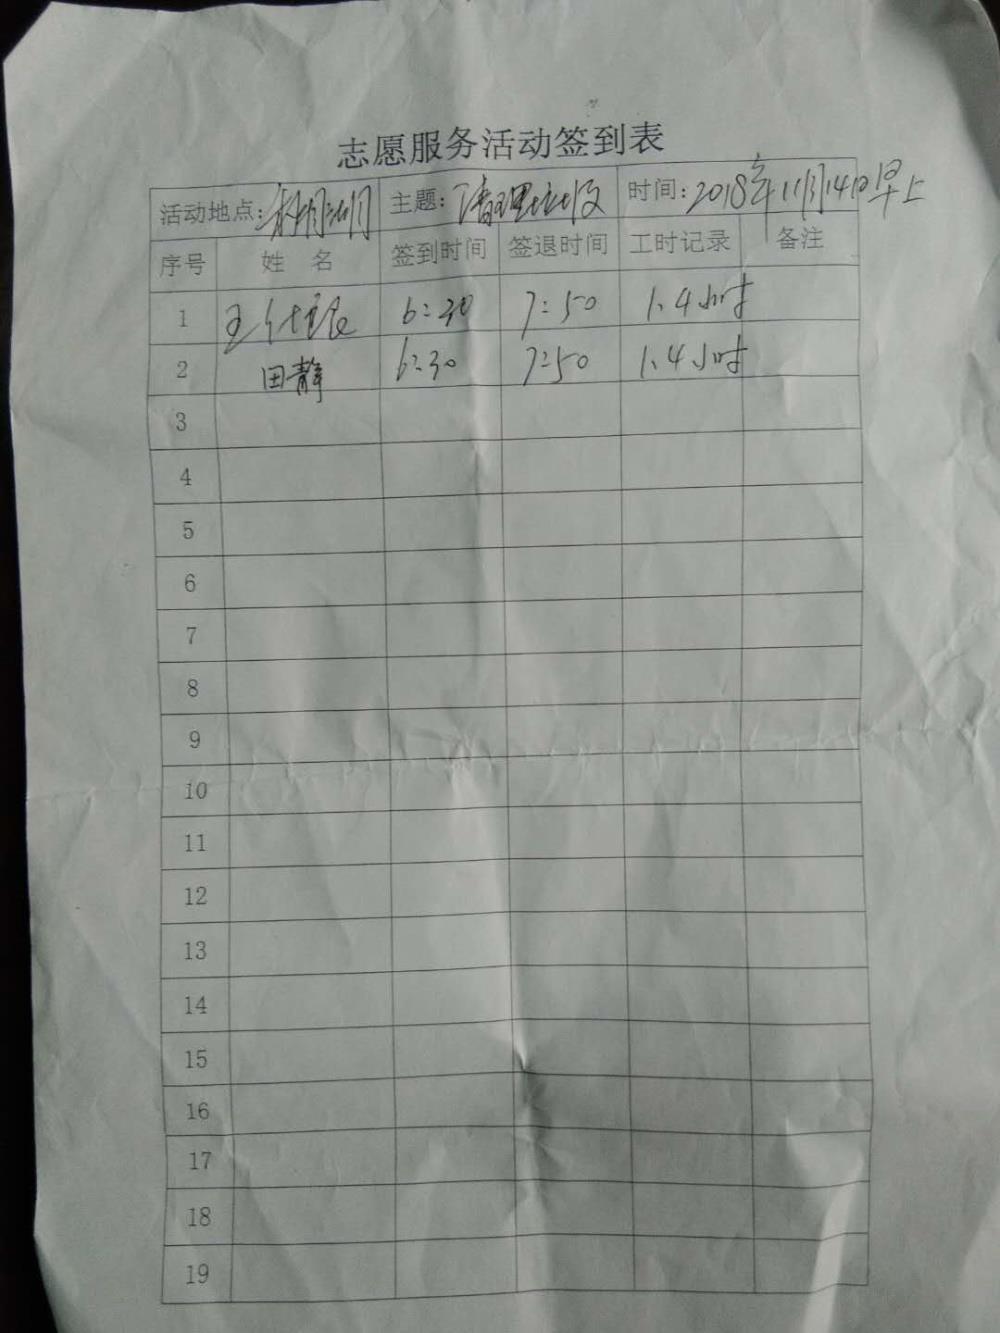 志愿服务活动签到表
活动地点: 主题:清理垃圾 时间:2018年11月14日早上
序号 姓 名 签到时间 签退时间 工时记录 备注
1 王仕良 6:30 7:50 1.4小时
2 田静 6:30 7:50 1.4小时
3
4
5
6
7
8
9
10
11
12
13
14
15
16
17
18
19